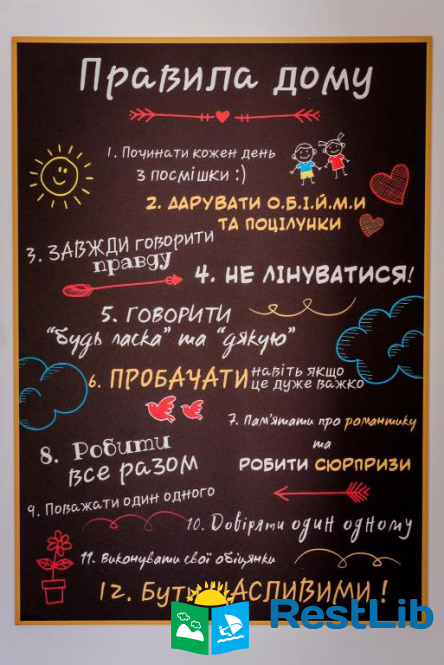 Правила дому
1. Починати кожен день
з посмішки :)
2. ДАРУВАТИ О.Б.І.Й.М.И
ТА ПОЦІЛУНКИ
3. ЗАВЖДИ говорити
правду
4. НЕ ЛІНУВАТИСЯ!
5. ГОВОРИТИ
"будь ласка" та "дякую"
6. ПРОБАЧАТИ навіть якщо
це дуже важко
7. Пам'ятати про романтику
та
РОБИТИ СЮРПРИЗИ
8. Робити
все разом
9. Поважати один одного
10. Довіряти один одному
11. Виконувати свої обіцянки
12. ЩАСЛИВИМИ !
RestLib